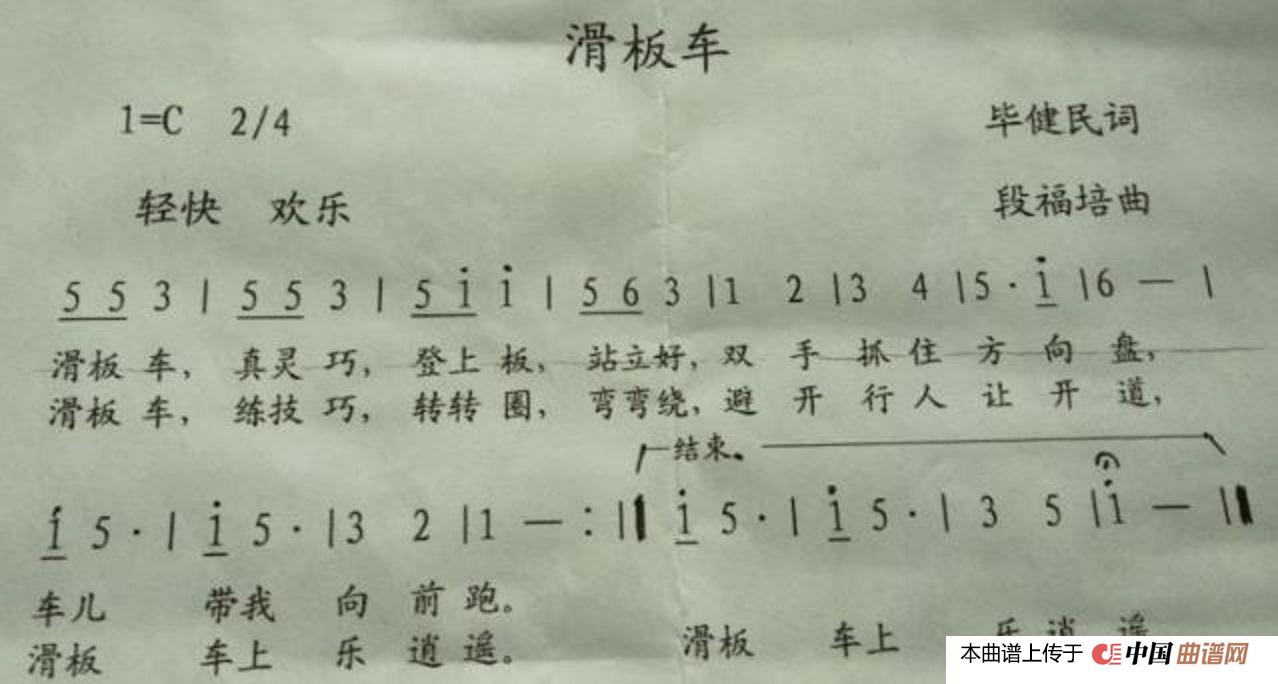 滑板车
1=C 2/4 毕健民词
轻快 欢乐 段福培曲
5 5 3 | 5 5 3 | 5 i̇ i̇ | 5 6 3 | 1 2 | 3 4 | 5 · i̇ | 6 — |
滑板 车, 真灵 巧, 登上 板, 站立好, 双 手 抓 住 方 向 盘,
滑板 车, 练技 巧, 转转 圈, 弯弯绕, 避 开 行 人 让 开 道,
结束。
i̇ 5 · | i̇ 5 · | 3 2 | 1 — :|| i̇ 5 · | i̇ 5 · | 3 5 | i̇ — ||
车儿 带我 向 前 跑。
滑板 车上 乐 逍 遥。 滑板 车上 乐 逍 遥
本曲谱上传于 中国曲谱网